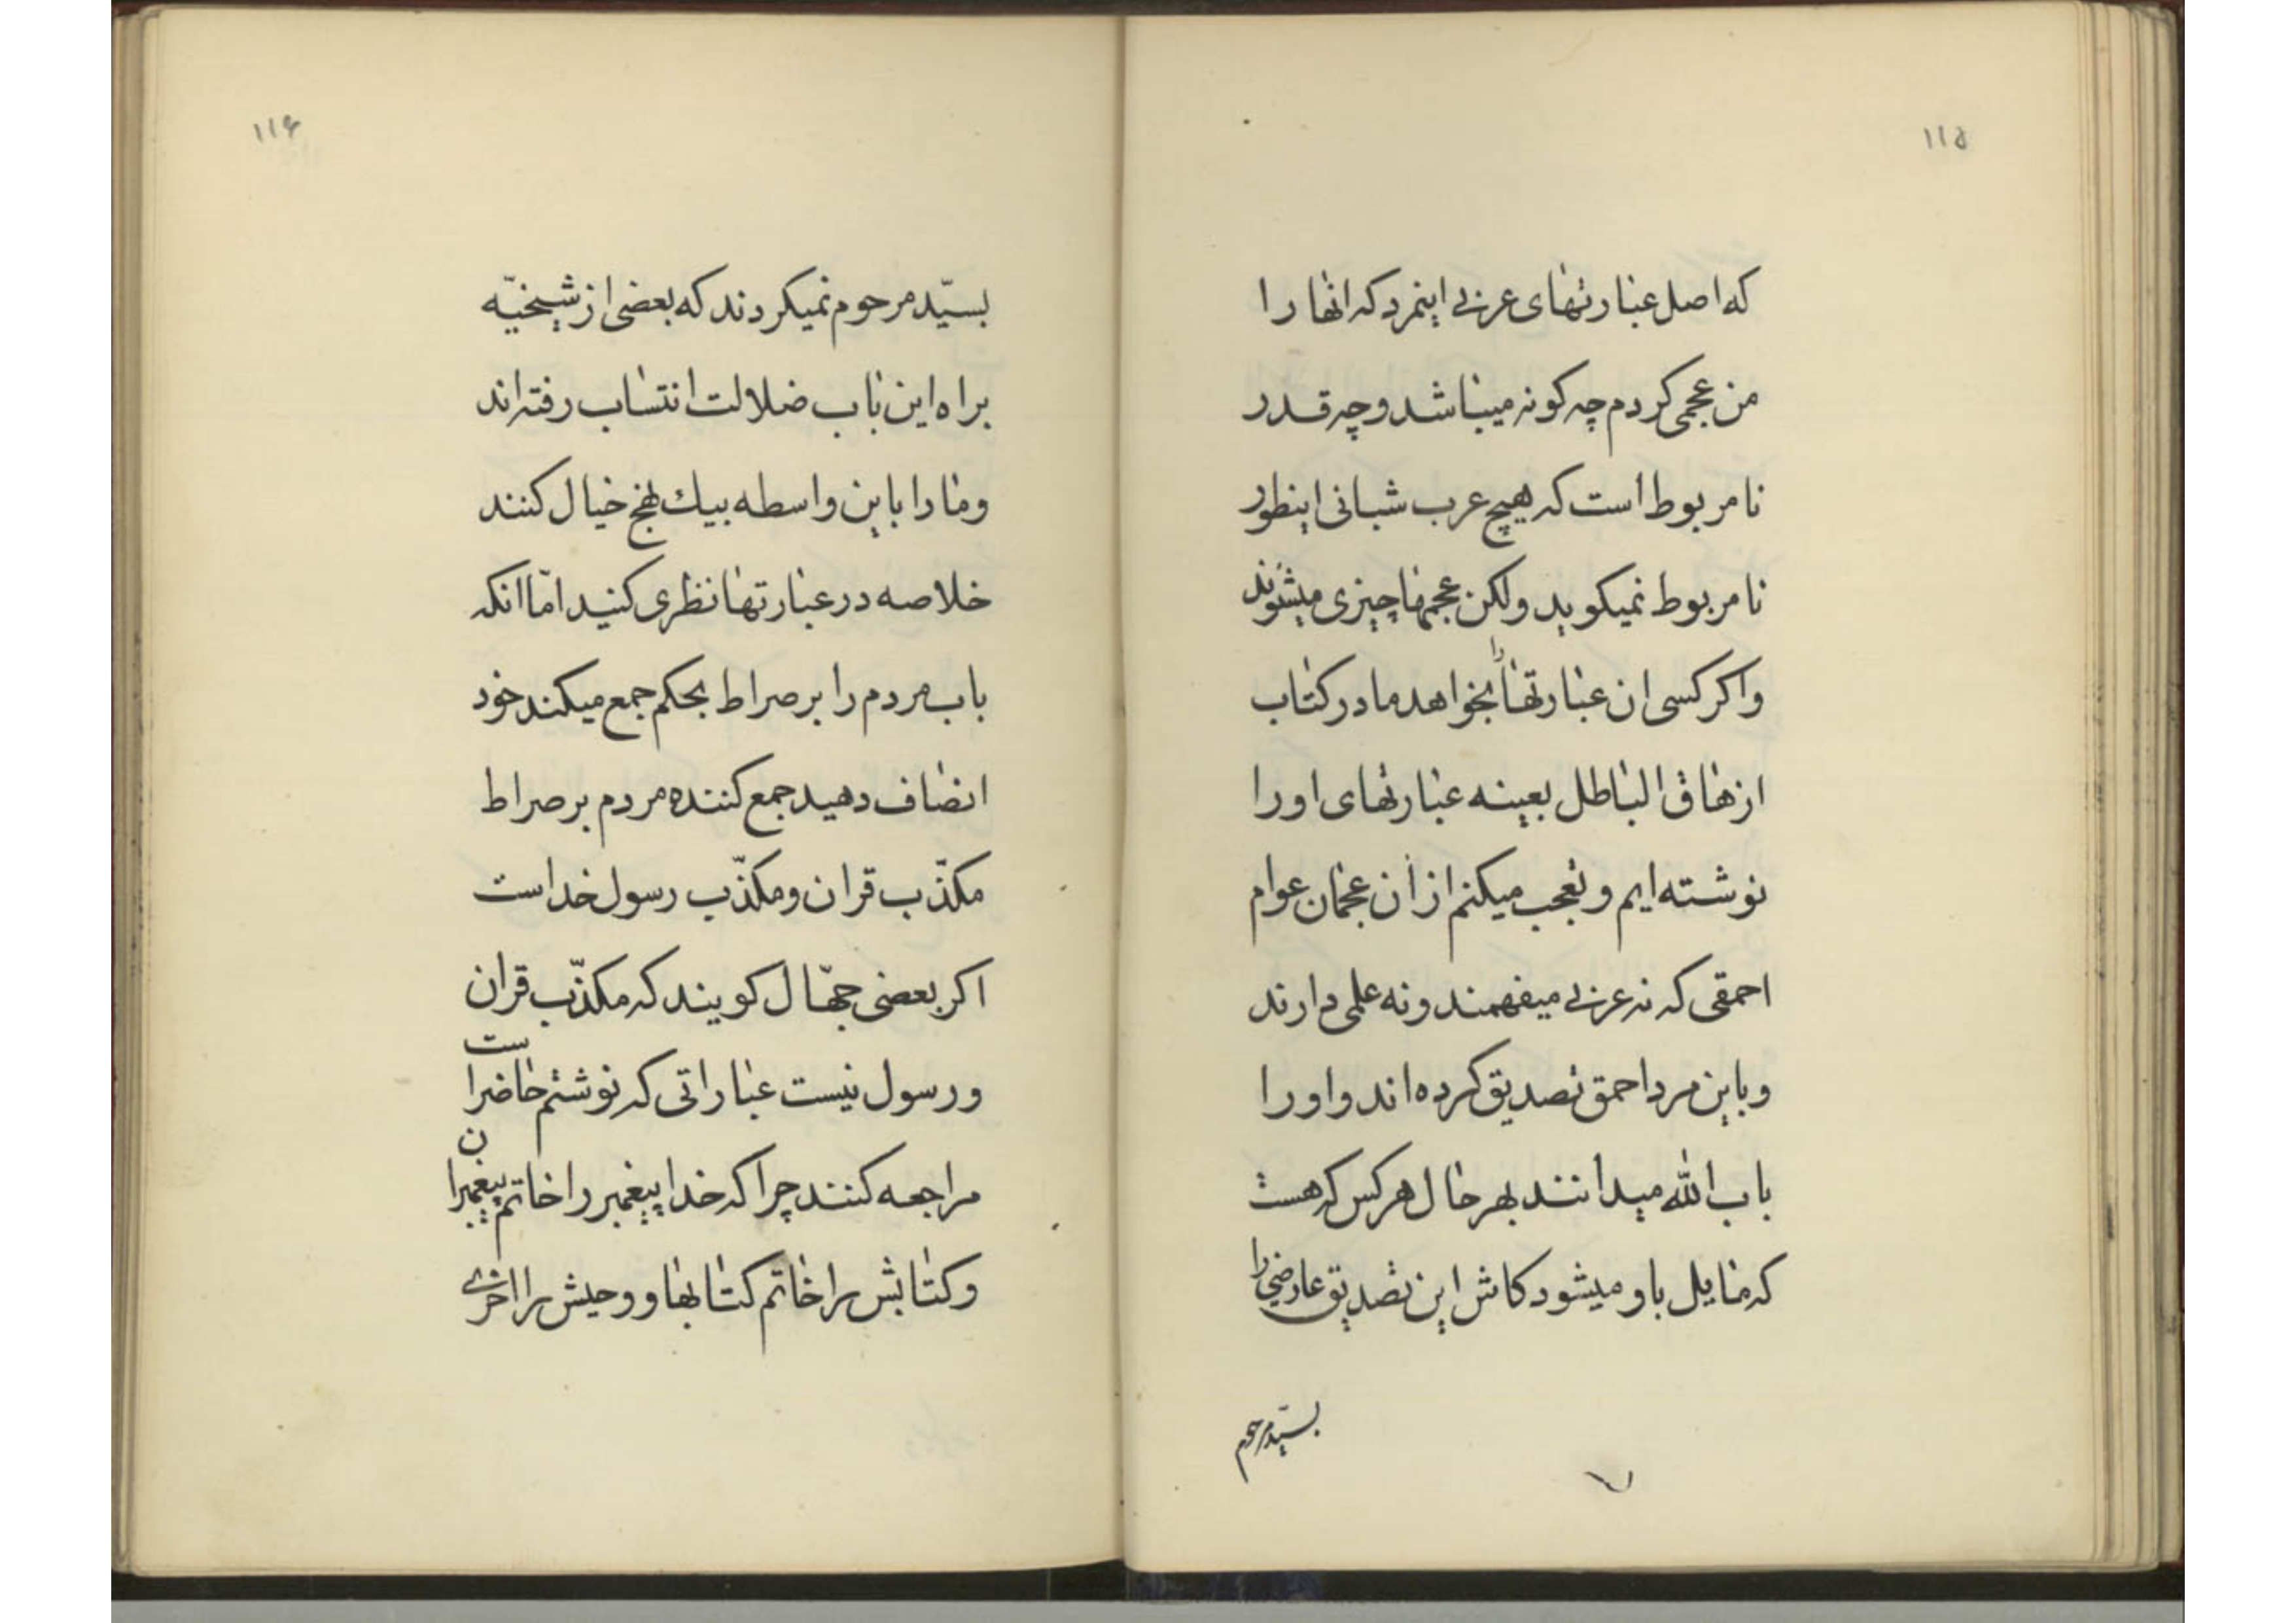 ۱۱۵
که اصل عبارتهای عربی اینمرد که انها را
من عجمی کردم چه کونه میباشد و چه قدر
نا مربوط است که هیچ عرب شبانی اینطور
نا مربوط نمیکوید ولکن عجمها چیزی میشنوند
و اکر کسی ان عبارتها را بخواهد ما در کتاب
ازهاق الباطل بعینه عبارتهای او را
نوشته ایم و تعجب میکنم از ان عجمان عوام
احمقی که نه عربی میفهمند و نه علمی دارند
و باین مرد احمق تصدیق کرده اند و او را
باب الله میدانند بهر حال هر کس که هست
که مایل باو میشود کاش این تصدیق عارضی را
بسیّد مرحوم
۱۱۶
بسیّد مرحوم نمیکردند که بعضی از شیخیّه
براه این باب ضلالت انتساب رفته اند
و ما را باین واسطه بیك نهج خیال کنند
خلاصه در عبارتها نظری کنید امّا انکه
باب مردم را بر صراط بحکم جمع میکند خود
انصاف دهید جمع کننده مردم بر صراط
مکذّب قران و مکذّب رسول خداست
اکر بعضی جهّال کویند که مکذّب قران
و رسول نیست عباراتی که نوشتم حاضر است
مراجعه کنند چرا که خدا پیغمبر را خاتم پیغمبران
و کتابش را خاتم کتابها و وحیش را اخری